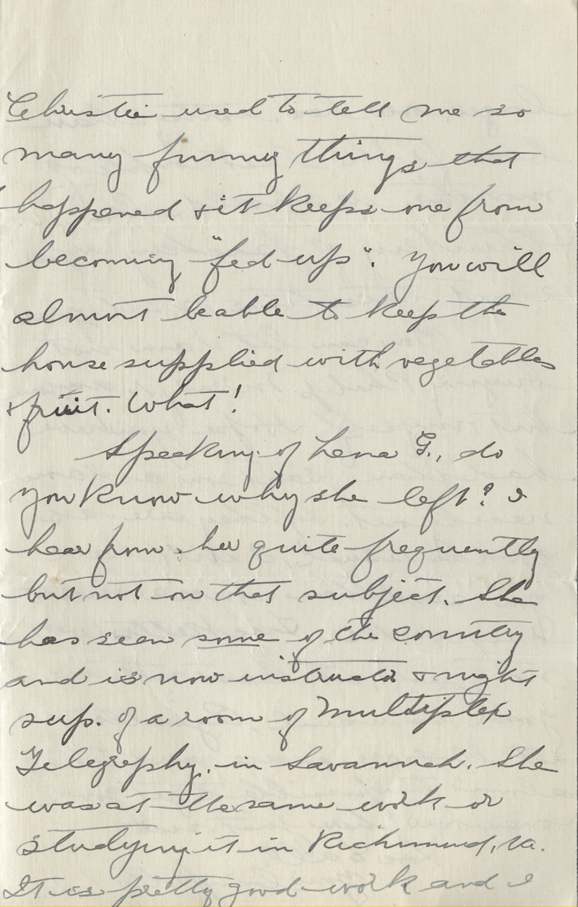 Christie used to tell me so
many funny things that
happened & it keeps one from
becoming "fed-up". You will
almost be able to keep the
house supplied with vegetables
& fruit. What!
Speaking of Lena G., do
you know why she left? I
hear from her quite frequently
but not on that subject. She
has seen some of the country
and is now instructor & night
sup. of a room of Multiplex
Telegraphy, in Savannah. She
was at the same work or
studying it in Richmond, Va.
It is pretty good work and I